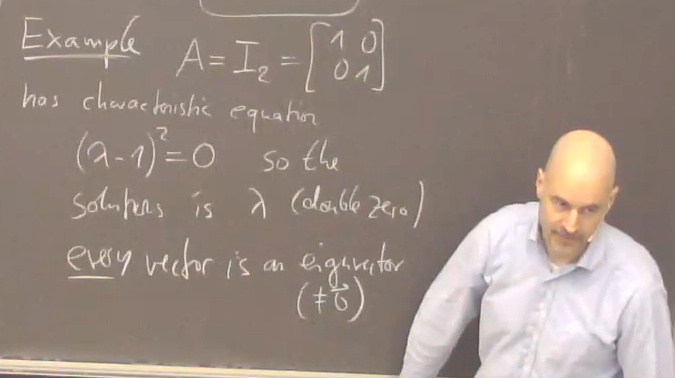 Example A = I₂ = [1 0
0 1]
has characteristic equation
(λ-1)² = 0 so the
solutions is λ (double zero)
every vector is an eigenvector
(≠ 0⃗)